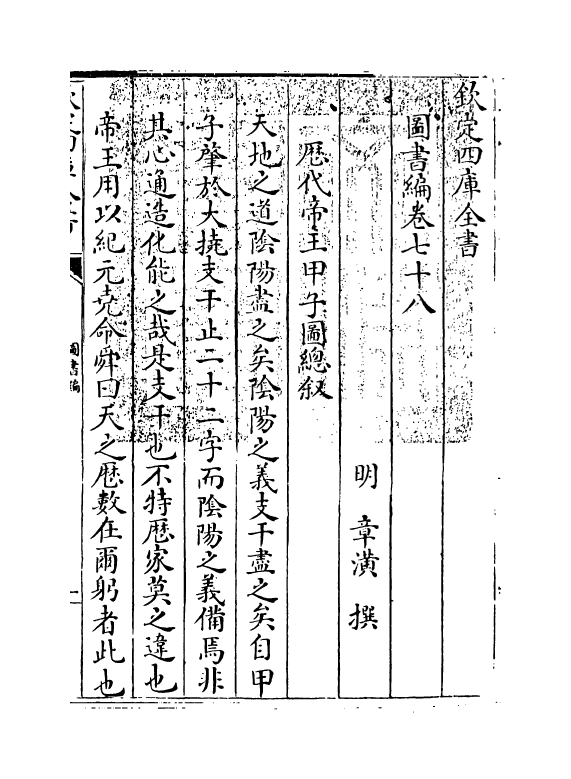 欽定四庫全書
圖書編卷七十八
明 章潢 撰
歷代帝王甲子圖總敘
天地之道陰陽盡之矣陰陽之義支干盡之矣自甲
子肇於大撓支干止二十二字而陰陽之義備焉非
其心通造化能之哉是支干也不特厯家莫之違也
帝王用以紀元堯命舜曰天之厯數在爾躬者此也
圖書編